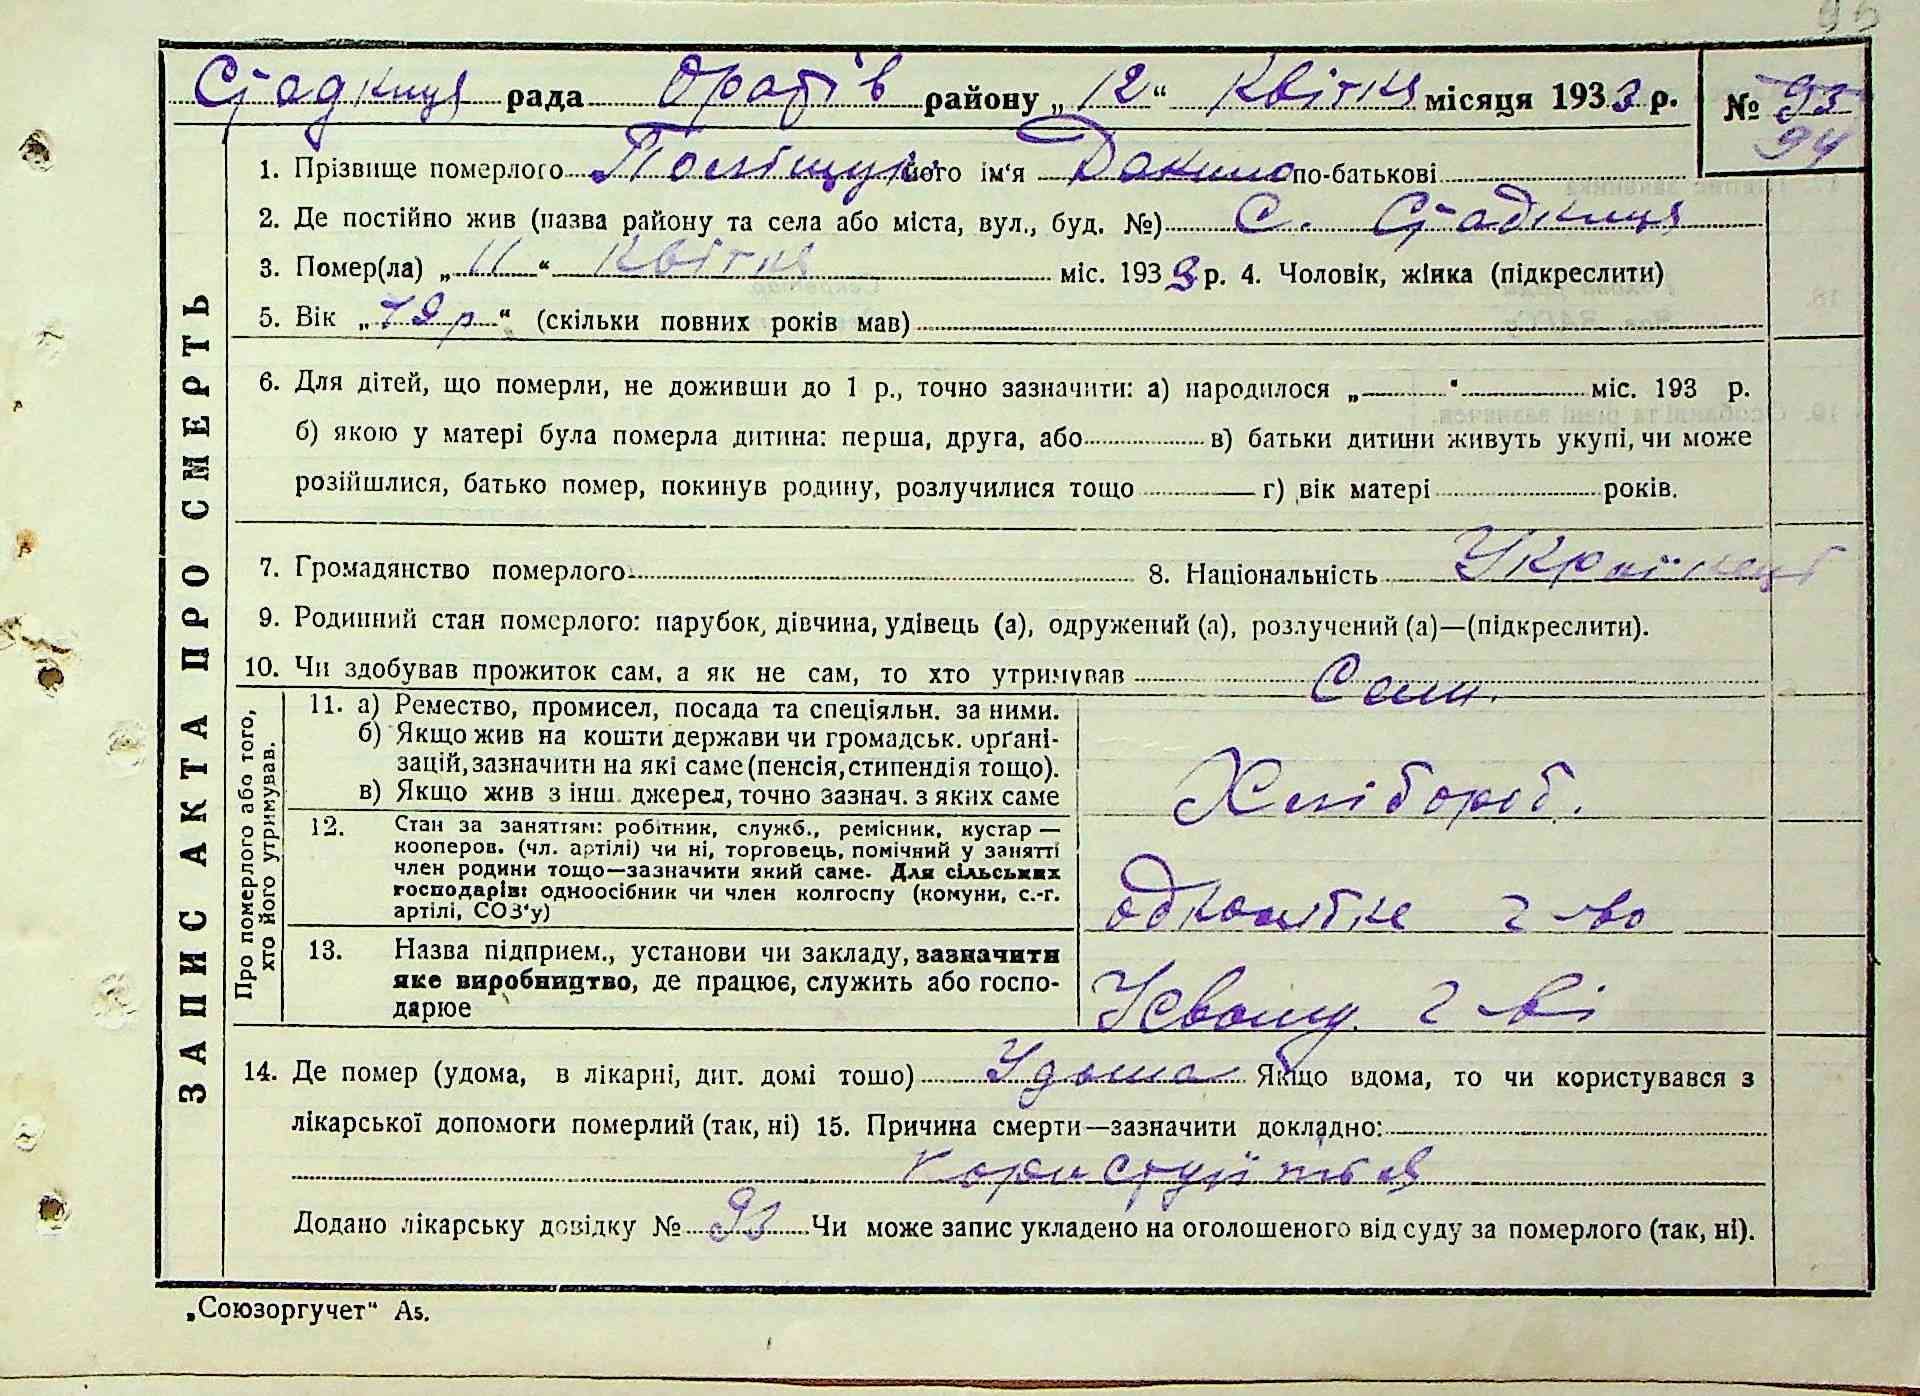 96
Стадниця рада Оратів району „12“ Квітня місяця 1933 р. № 93
94
1. Прізвище померлого Поліщук його ім'я Данило по-батькові
2. Де постійно жив (назва району та села або міста, вул., буд. №) С. Стадниця
3. Помер(ла) „11“ Квітня міс. 1933 р. 4. Чоловік, жінка (підкреслити)
5. Вік „79 р“ (скільки повних років мав)
6. Для дітей, що померли, не доживши до 1 р., точно зазначити: а) народилося „ “ міс. 193 р.
б) якою у матері була померла дитина: перша, друга, або в) батьки дитини живуть укупі, чи може
розійшлися, батько помер, покинув родину, розлучилися тощо г) вік матері років.
7. Громадянство померлого 8. Національність Українець
9. Родинний стан померлого: парубок, дівчина, удівець (а), одружений (а), розлучений (а)—(підкреслити).
10. Чи здобував прожиток сам, а як не сам, то хто утримував Сам.
ЗАПИС АКТА ПРО СМЕРТЬ
Про померлого або того,
хто його утримував.
11. а) Ремество, промисел, посада та спеціяльн. за ними.
б) Якщо жив на кошти держави чи громадськ. орґані-
зацій, зазначити на які саме (пенсія, стипендія тощо).
в) Якщо жив з інш. джерел, точно зазнач. з яких саме
Хлібороб.
12. Стан за заняттям: робітник, служб., ремісник, кустар —
кооперов. (чл. артілі) чи ні, торговець, помічний у занятті
член родини тощо—зазначити який саме. Для сільських
господарів: одноосібник чи член колгоспу (комуни, с.-г.
артілі, СОЗ'у)
г-во
13. Назва підприєм., установи чи закладу, зазначити
яке виробництво, де працює, служить або госпо-
дарює
Усвому г-ві
14. Де помер (удома, в лікарні, дит. домі тощо) Удома Якщо вдома, то чи користувався з
лікарської допомоги померлий (так, ні) 15. Причина смерти—зазначити докладно:
Додано лікарську довідку № 93 Чи може запис укладено на оголошеного від суду за померлого (так, ні).
„Союзоргучет“ А5.